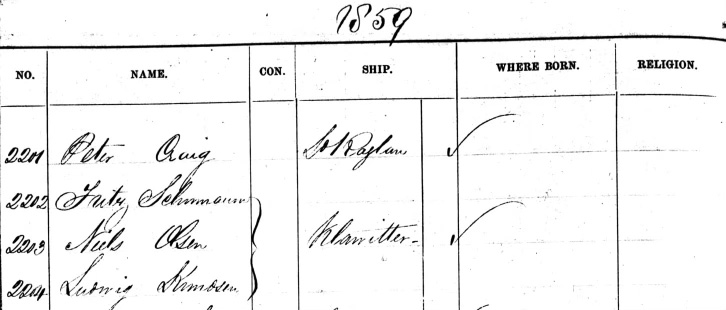 1859
NO. NAME. CON. SHIP. WHERE BORN. RELIGION.
2201 Peter Craig Ld Raglan
2202 Fritz Schumann
2203 Niels Olsen Klawitter
2204 Ludwig Knudsen